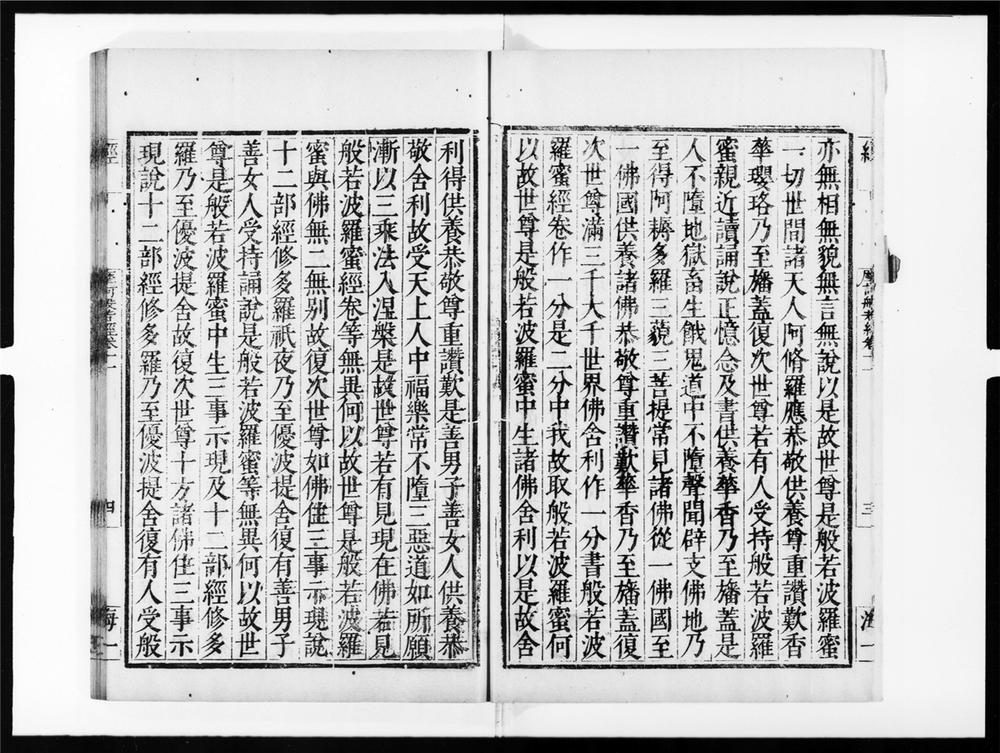 亦無相無貌無言無說以是故世尊是般若波羅蜜
一切世間諸天人阿脩羅應恭敬供養尊重讚歎香
華瓔珞乃至旛蓋復次世尊若有人受持般若波羅
蜜親近讀誦說正憶念及書供養華香乃至旛蓋是
人不墮地獄畜生餓鬼道中不墮聲聞辟支佛地乃
至得阿耨多羅三藐三菩提常見諸佛從一佛國至
一佛國供養諸佛恭敬尊重讚歎華香乃至旛蓋復
次世尊滿三千大千世界佛舍利作一分書般若波
羅蜜經卷作一分是二分中我故取般若波羅蜜何
以故世尊是般若波羅蜜中生諸佛舍利以是故舍
三
利得供養恭敬尊重讚歎是善男子善女人供養恭
敬舍利故受天上人中福樂常不墮三惡道如所願
漸以三乘法入涅槃是故世尊若有見現在佛若見
般若波羅蜜經卷等無異何以故世尊是般若波羅
蜜與佛無二無別故復次世尊如佛住三事示現說
十二部經修多羅祇夜乃至優波提舍復有善男子
善女人受持誦說是般若波羅蜜等無異何以故世
尊是般若波羅蜜中生三事示現及十二部經修多
羅乃至優波提舍故復次世尊十方諸佛住三事示
現說十二部經修多羅乃至優波提舍復有人受般
四